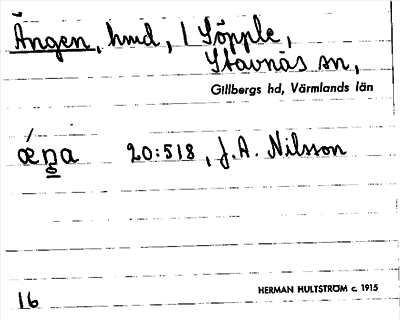 Ängen, hmd, 1 Söpple,
Stavnäs sn,
Gillbergs hd, Värmlands län
ǽṉa 20:518, J.A. Nilsson
HERMAN HULTSTRÖM c. 1915
16